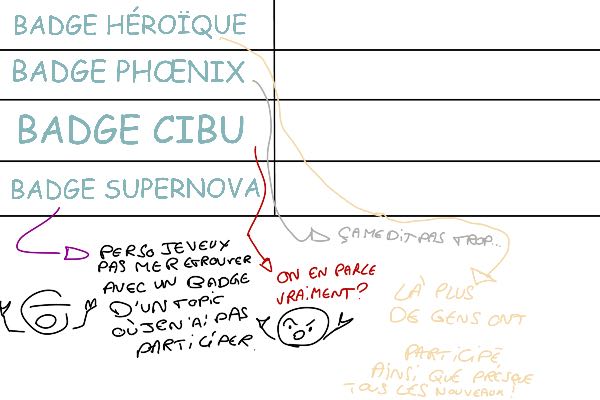 BADGE HÉROÏQUE
BADGE PHŒNIX
BADGE CIBU
BADGE SUPERNOVA
PERSO JE VEUX
PAS ME RETROUVER
AVEC UN BADGE
D'UN TOPIC
OÙ J'EN'AI PAS
PARTICIPER.
ON EN PARLE
VRAIMENT?
ÇA ME DIT PAS TROP...
LÀ PLUS
DE GENS ONT
PARTICIPÉ,
AINSI QUE PRÉSQUE
TOUS LES NOUVEAUX!